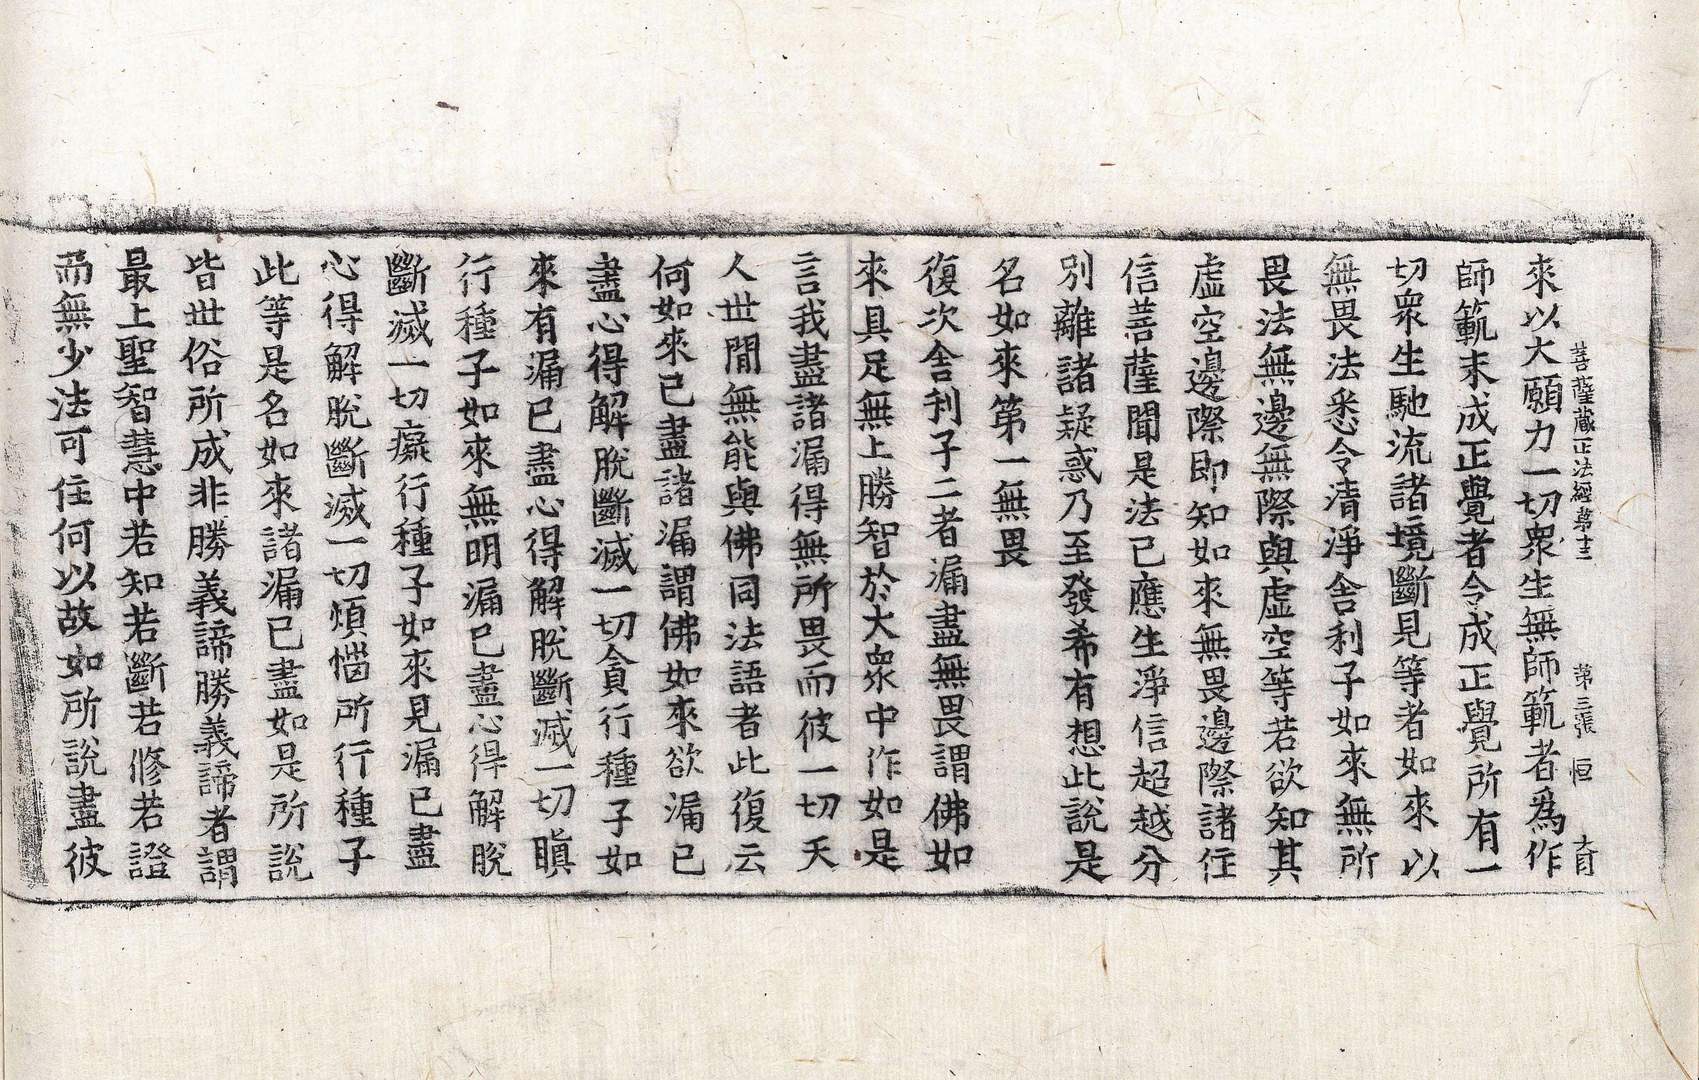 菩薩藏正法經卷第十三 第三張 恒
來以大願力一切衆生無師範者爲作
師範未成正覺者令成正覺所有一
切衆生馳流諸境斷見等者如來以
無畏法悉令清淨舍利子如來無所
畏法無邊無際與虛空等若欲知其
虛空邊際即知如來無畏邊際諸住
信菩薩聞是法已應生淨信超越分
別離諸疑惑乃至發希有想此說是
名如來第一無畏
復次舍利子二者漏盡無畏謂佛如
來具足無上勝智於大衆中作如是
言我盡諸漏得無所畏而彼一切天
人世間無能與佛同法語者此復云
何如來已盡諸漏謂佛如來欲漏已
盡心得解脫斷滅一切貪行種子如
來有漏已盡心得解脫斷滅一切瞋
行種子如來無明漏已盡心得解脫
斷滅一切癡行種子如來見漏已盡
心得解脫斷滅一切煩惱所行種子
此等是名如來諸漏已盡如是所說
皆世俗所成非勝義諦勝義諦者謂
最上聖智慧中若知若斷若修若證
而無少法可住何以故如所說盡彼